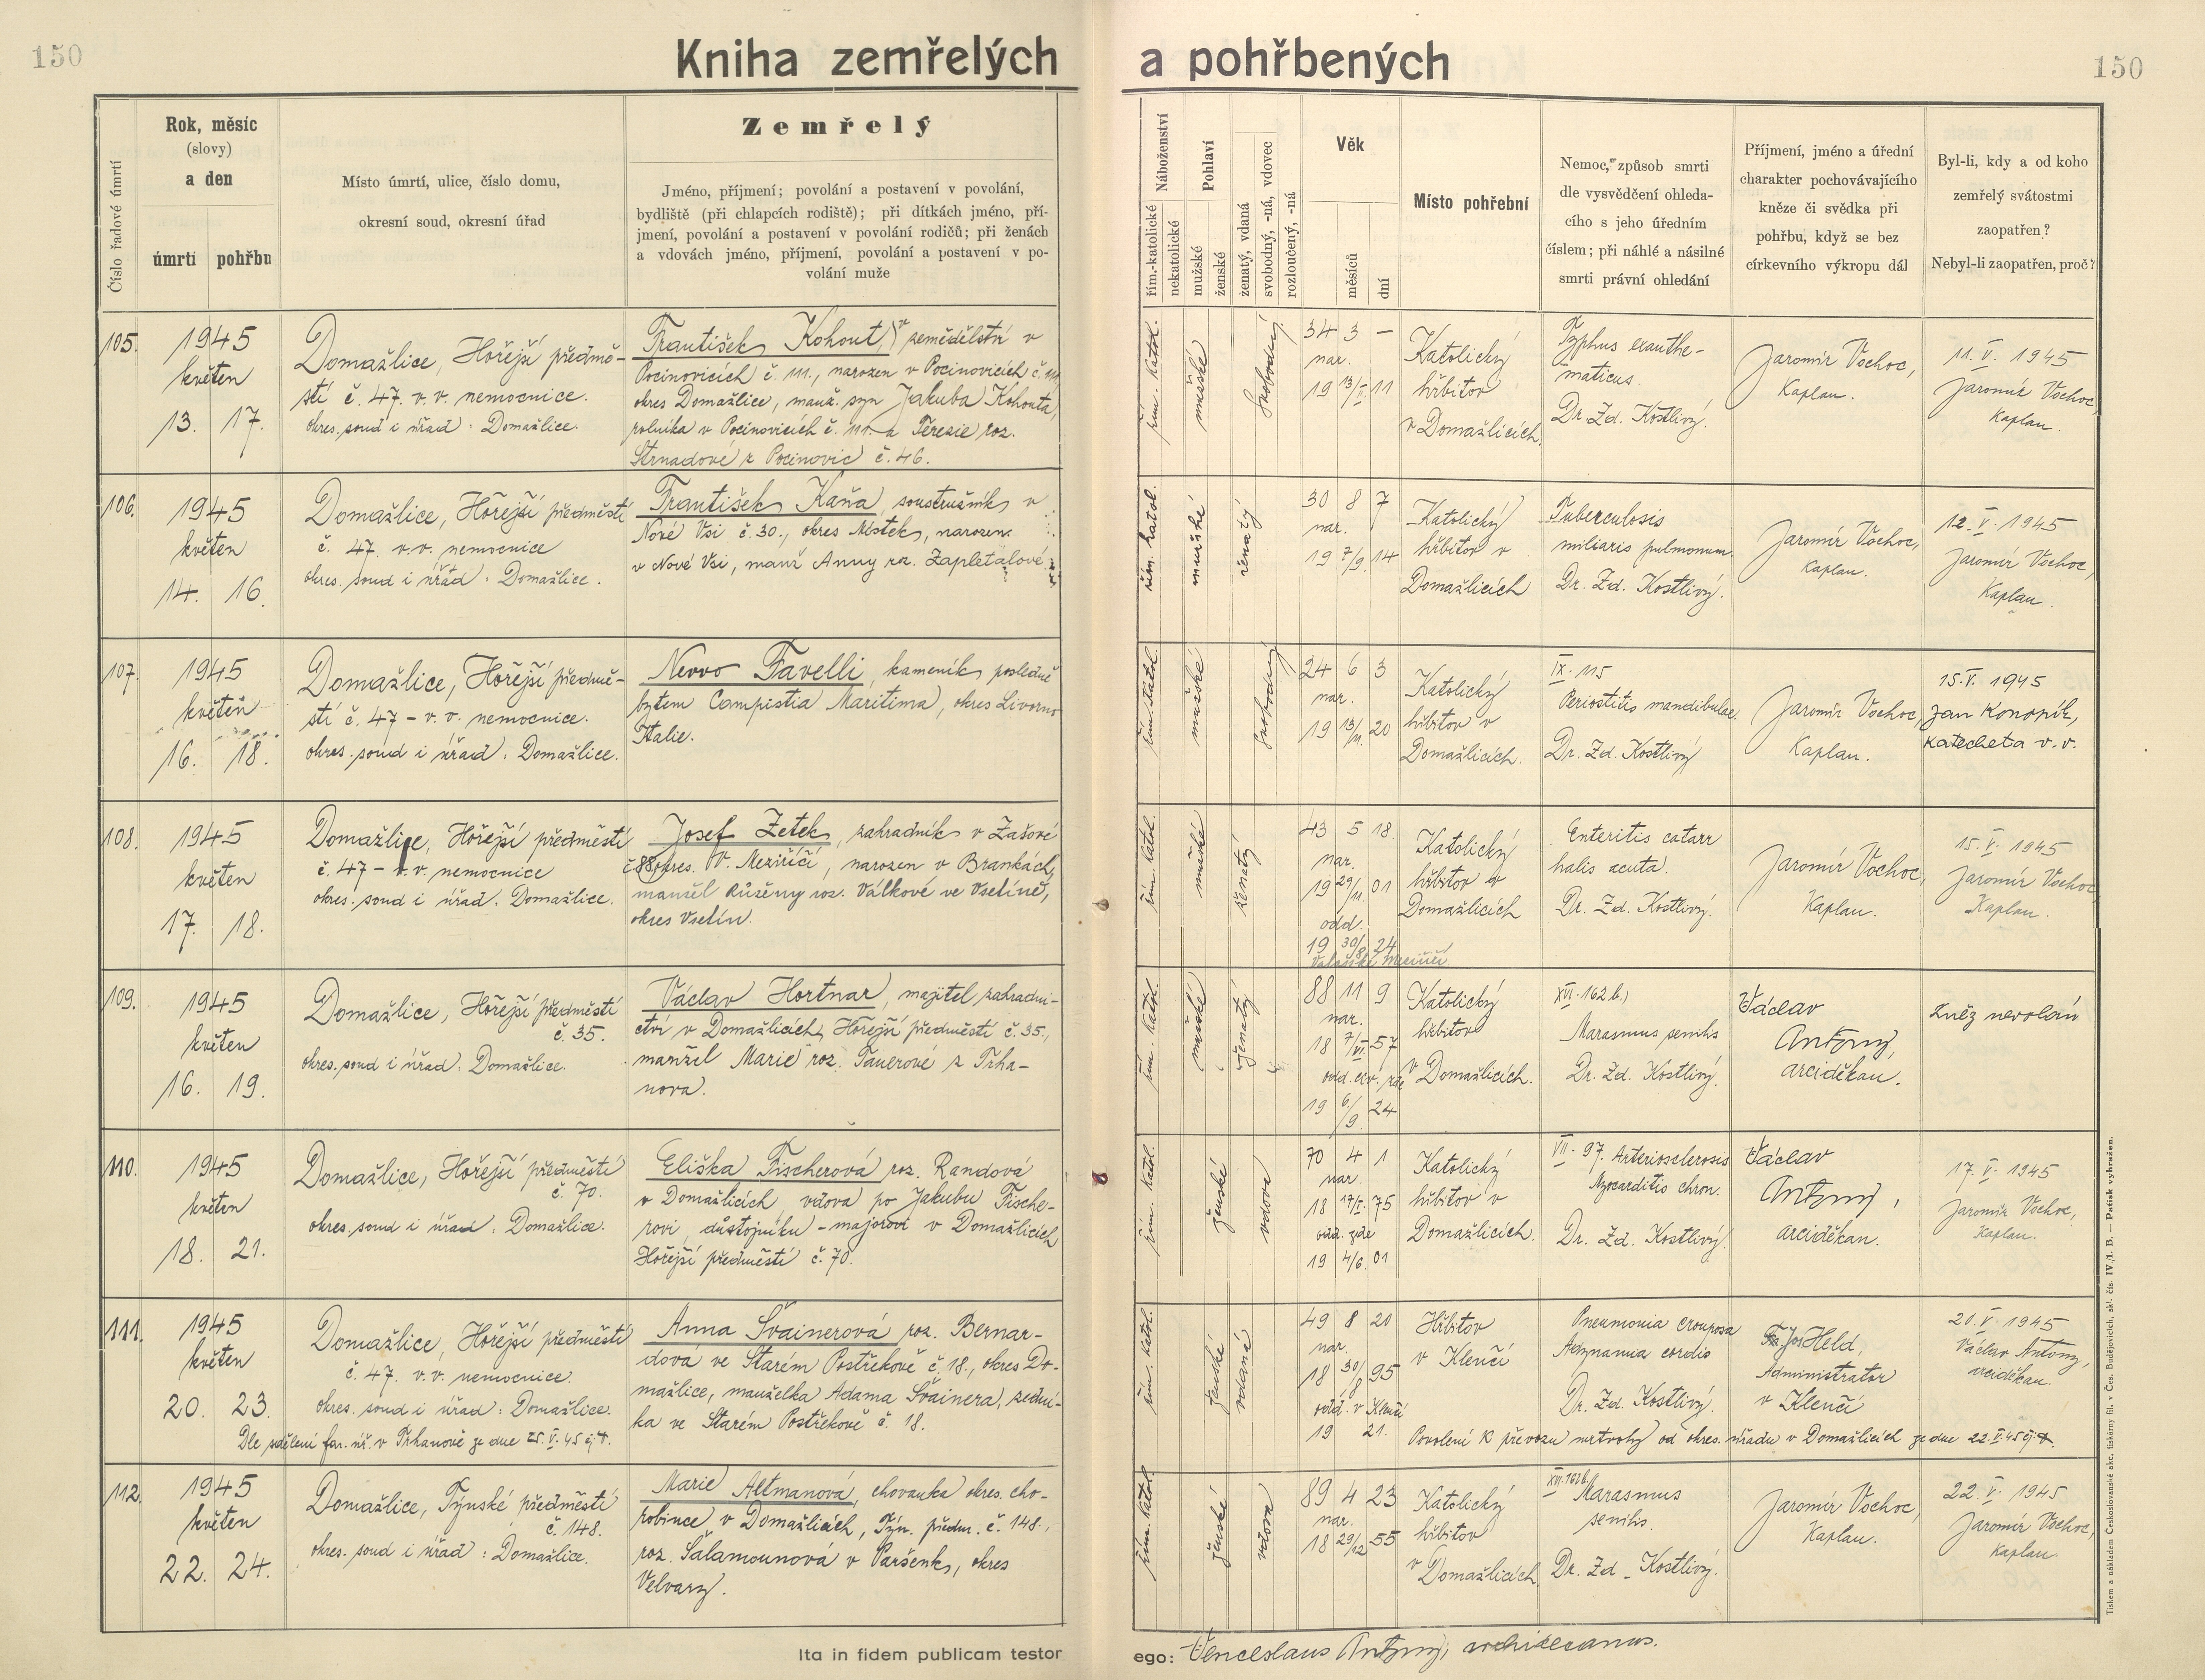 150
Kniha zemřelých a pohřbených
150
Číslo řadové úmrtí
Rok, měsíc
(slovy)
a den
úmrtí
pohřbu
Místo úmrtí, ulice, číslo domu,
okresní soud, okresní úřad
Zemřelý
Jméno, příjmení; povolání a postavení v povolání,
bydliště (při chlapcích rodiště); při dítkách jméno, pří-
jmení, povolání a postavení v povolání rodičů; při ženách
a vdovách jméno, příjmení, povolání a postavení v po-
volání muže
Náboženství
řím.-katolické
nekatolické
Pohlaví
mužské
ženské
ženatý, vdaná
svobodný, -ná, vdovec
rozloučený, -ná
Věk
měsíců
dní
Místo pohřební
Nemoc, způsob smrti
dle vysvědčení ohleda-
cího s jeho úředním
číslem; při náhlé a násilné
smrti právní ohledání
Příjmení, jméno a úřední
charakter pochovávajícího
kněze či svědka při
pohřbu, když se bez
církevního výkropu dál
Byl-li, kdy a od koho
zemřelý svátostmi
zaopatřen?
Nebyl-li zaopatřen, proč?
105.
1945
květen
13. 17.
Domažlice, Hořejší předmě-
stí č. 47. v.v. nemocnice.
okres. soud i úřad: Domažlice.
František Kohout, v zemědělství v
Pocinovicích č. 111., narozen v Pocinovicích č. 111,
okres Domažlice, manž. syn Jakuba Kohouta,
rolníka v Pocinovicích č. 111. a Terezie roz.
Strnadové z Pocinovic č. 46.
řím. katol.
mužské
svobodný
34 3 –
nar.
19 13/II. 11
Katolický
hřbitov
v Domažlicích.
Typhus exanthe-
maticus.
Dr. Zd. Kostlivý.
Jaromír Vochoc,
Kaplan.
11. V. 1945
Jaromír Vochoc,
Kaplan.
106.
1945
květen
14. 16.
Domažlice, Hořejší předměstí
č. 47. v.v. nemocnice
okres. soud i úřad: Domažlice.
František Kaňa, soustružník v
Nové Vsi č. 30., okres Místek, narozen
v Nové Vsi, manž Anny roz. Zapletalové
řím. katol.
mužské
ženatý
30 8 7
nar.
19 7/9. 14
Katolický
hřbitov v
Domažlicích
Tuberculosis
miliaris pulmonum.
Dr. Zd. Kostlivý.
Jaromír Vochoc,
Kaplan.
12. V. 1945
Jaromír Vochoc,
Kaplan.
107.
1945
květen
16. 18.
Domažlice, Hořejší předmě-
stí č. 47 – v. v. nemocnice.
okres. soud i úřad: Domažlice.
Nevvo Favelli, kameník posledně
bytem Campistia Maritima, okres Livorno
Italie.
řím. katol.
mužské
svobodný
24 6 3
nar.
19 13/11. 20
Katolický
hřbitov v
Domažlicích.
IX. 115
Periostitis mandibulae.
Dr. Zd. Kostlivý
Jaromír Vochoc,
Kaplan.
15. V. 1945
Jan Konopík,
katecheta v. v.
108.
1945
květen
17. 18.
Domažlice, Hořejší předměstí
č. 47 – v.v. nemocnice
okres. soud i úřad: Domažlice.
Josef Zetek, zahradník v Zašové
č 88, okres. V. Meziříčí, narozen v Brankách,
manžel Růženy roz. Válkové ve Vsetíně,
okres Vsetín.
řím. katol.
mužské
ženatý
43 5 18.
nar.
19 29/11. 01
odd.
19 30/8. 24
Valašské Meziříčí
Katolický
hřbitov v
Domažlicích
Enteritis catarr
halis acuta.
Dr. Zd. Kostlivý.
Jaromír Vochoc,
Kaplan.
15. V. 1945
Jaromír Vochoc
Kaplan.
109.
1945
květen
16. 19.
Domažlice, Hořejší předměstí
č. 35.
okres. soud i úřad: Domažlice.
Václav Hortnar, majitel zahradni-
ctví v Domažlicích, Hořejší předměstí č. 35.,
manžel Marie roz. Tauerové z Trha-
nova.
řím. katol.
mužské
ženatý
88 11 9
nar.
18 7/VI. 57
odd. civ. zde
19 6/9. 24
Katolický
hřbitov
v Domažlicích.
XVI. 162 b.)
Marasmus senilis
Dr. Zd. Kostlivý.
Václav
Antony,
arciděkan.
Kněz nevolán
110.
1945
květen
18. 21.
Domažlice, Hořejší předměstí
č. 70.
okres. soud i úřad: Domažlice.
Eliška Fischerová roz. Randová
v Domažlicích, vdova po Jakubu Fische-
rovi, důstojníku – majorovi v Domažlicích
Hořejší předměstí č. 70.
řím. katol.
ženské
vdova
70 4 1
nar.
18 17/I. 75
odd. zde
19 4/6. 01
Katolický
hřbitov v
Domažlicích.
VII. 97. Arteriosclerosis
Myocarditis chron.
Dr. Zd. Kostlivý.
Václav
Antony,
arciděkan.
17. V. 1945
Jaromír Vochoc,
Kaplan.
111.
1945
květen
20. 23.
Domažlice, Hořejší předměstí
č. 47. v. v. nemocnice.
okres. soud i úřad: Domažlice.
Dle sdělení far. úř. v Trhanově ze dne 25. V. 45
Anna Švainerová roz. Bernar-
dová ve Starém Postřekově č. 18., okres Do-
mažlice, manželka Adama Švainera, zední-
ka ve Starém Postřekově č. 18.
řím. katol.
ženské
vdaná
49 8 20
nar.
18 30/8 95
odd. v Klenčí
19 21.
Hřbitov
v Klenčí
Pneumonia crouposa
Adynamia cordis
Dr. Zd. Kostlivý.
Jos Held,
Administrator
v Klenčí
20. V. 1945
Václav Antony,
arciděkan.
Povolení k převozu mrtvoly od okres. úřadu v Domažlicích ze dne 22. V. 45
112.
1945
květen
22. 24.
Domažlice, Týnské předměstí
č. 148.
okres. soud i úřad: Domažlice.
Marie Altmanová, chovanka okres. cho-
robince v Domažlicích, Týn. předm. č. 148.,
roz. Šalamounová v Paršenk, okres
Velvary.
řím. katol.
ženské
vdova
89 4 23
nar.
18 29/12 55
Katolický
hřbitov
v Domažlicích
XVI. 162 b.
Marasmus
senilis.
Dr. Zd. Kostlivý.
Jaromír Vochoc,
Kaplan.
22. V. 1945
Jaromír Vochoc,
Kaplan.
Ita in fidem publicam testor ego: Venceslaus Antony, archidecanus.
Tiskem a nákladem Českoslovanské akc. tiskárny fil. v Čes. Budějovicích, skl. čís. IV./1. B. — Patisk vyhražen.